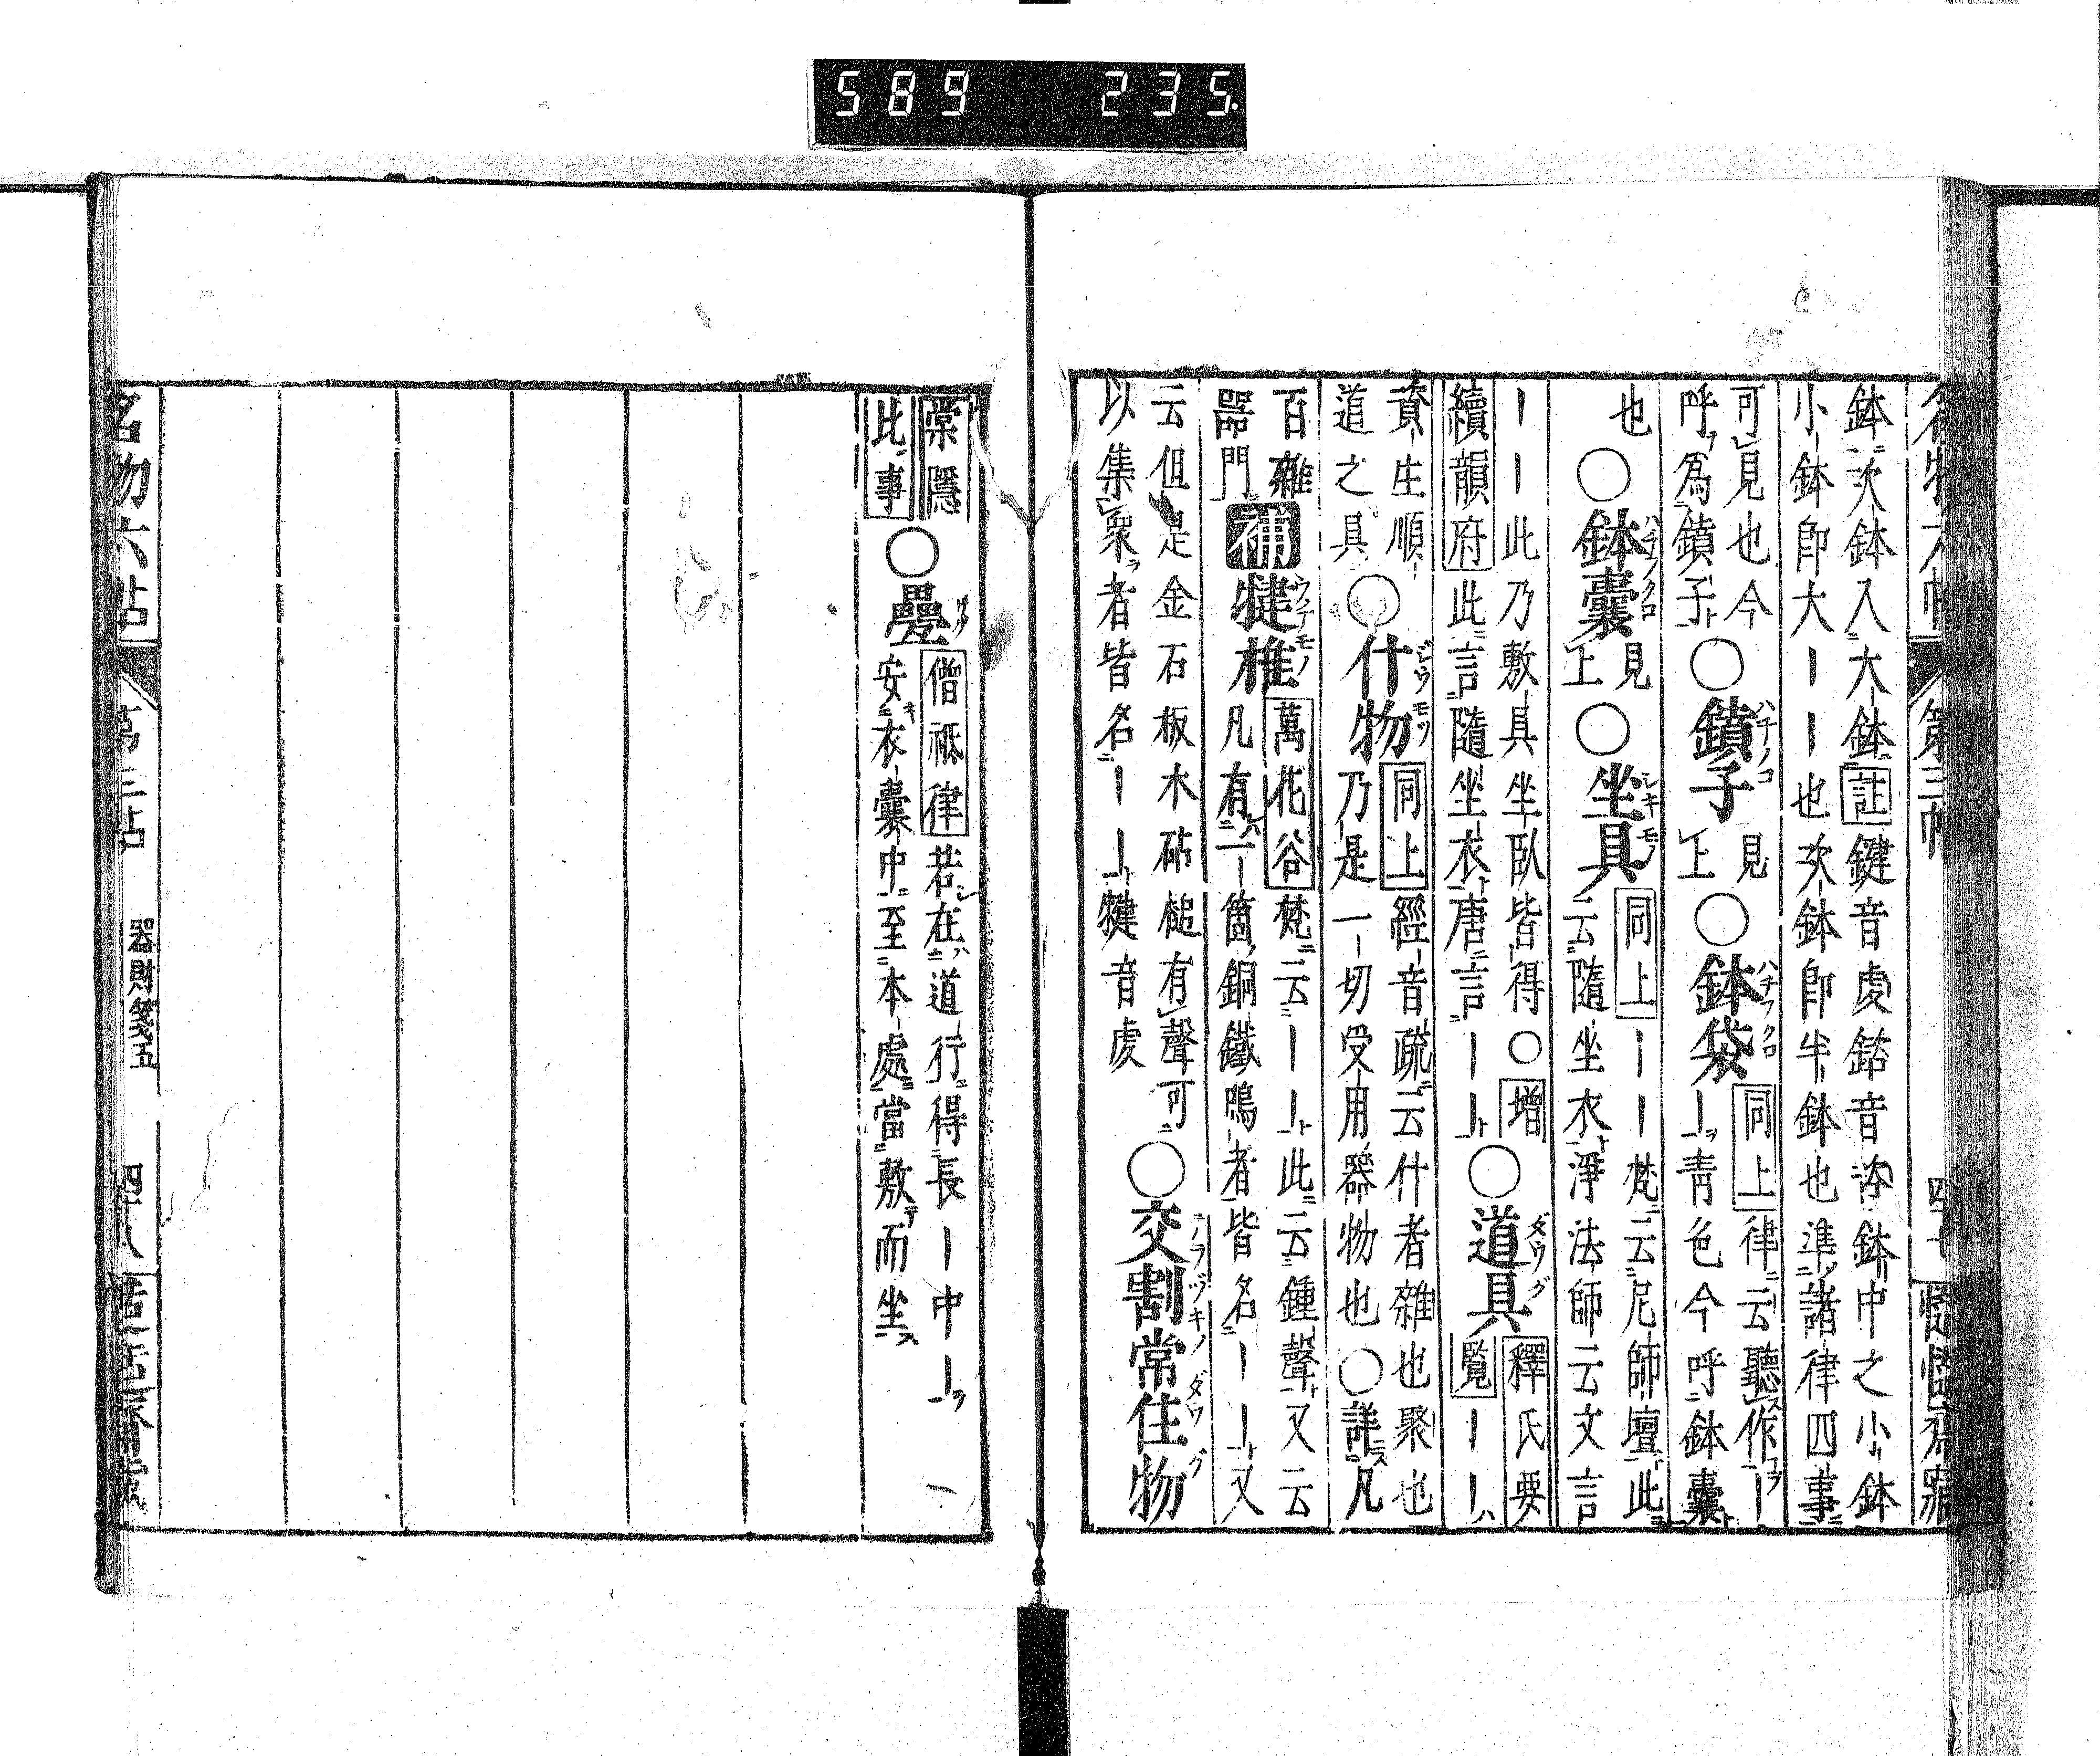 589 235.
名物六帖 第三帖
鉢次鉢入大鉢註鍵音虔鋡音咨鉢中之小鉢
小鉢卽大丨丨也次鉢卽半鉢也準諸律四事
可見也今
呼爲鐼子○鐼子見上○鉢袋同上律云聽作丨
丨靑色今呼鉢囊
也○鉢囊見上○坐具同上丨丨梵云尼師壇此
云隨坐衣淨法師云文言
丨丨此乃敷具坐臥皆得○增
續韻府此言隨坐衣唐言丨丨○道具釋氏要
覽丨丨
資生順
道之具○什物同上經音疏云什者雜也聚也
乃是一切受用器物也○詳凡
百雜
器門補犍椎萬花谷梵云丨丨此云鍾聲又云
凡有一箇銅鐵鳴者皆名丨丨又
云但是金石板木砧槌有聲可
以集衆者皆名丨丨犍音虔○交割常住物
棠隱
此事○㽮僧祗律若在道行得長丨中丨
安衣囊中至本處當敷而坐
名物六帖 第三帖 器財箋五 四十八